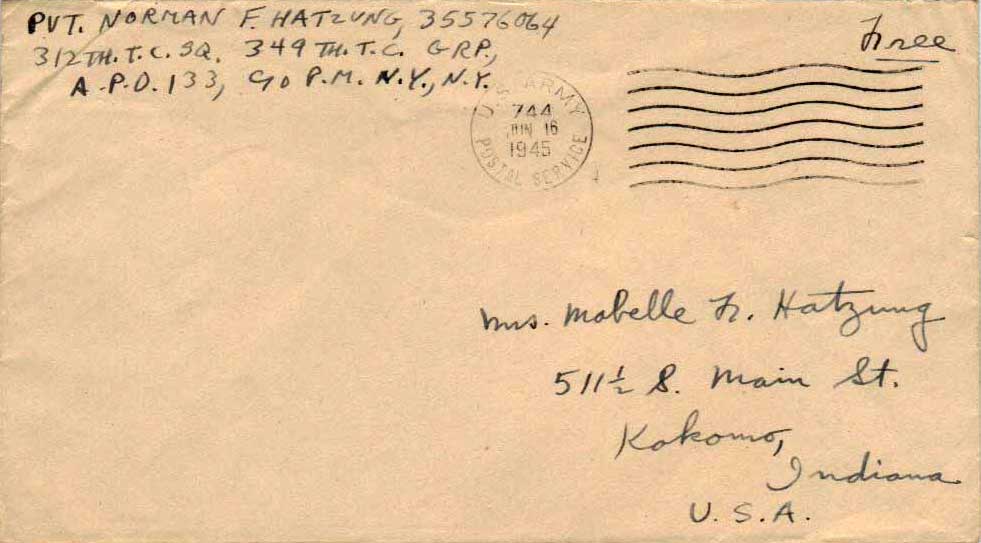 PVT. NORMAN F. HATZUNG, 35576064
312TH. T. C. SQ. 349TH. T. C. GRP.,
A.P.O. 133, C/o P.M. N.Y., N.Y.
Free
U.S. ARMY
744
JUN 16
1945
POSTAL SERVICE
Mrs. Mabelle Fr. Hatzung
511½ S. Main St.
Kokomo,
Indiana
U.S.A.